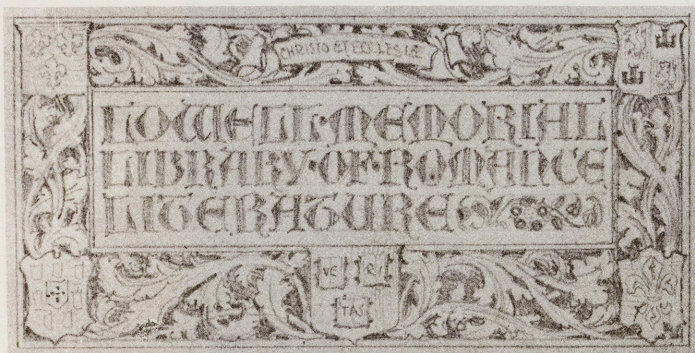 CHRISTO ET ECCLESIÆ
LOWELL·MEMORIAL
LIBRARY·OF·ROMANCE
LITERATURE
VE RI
TAS